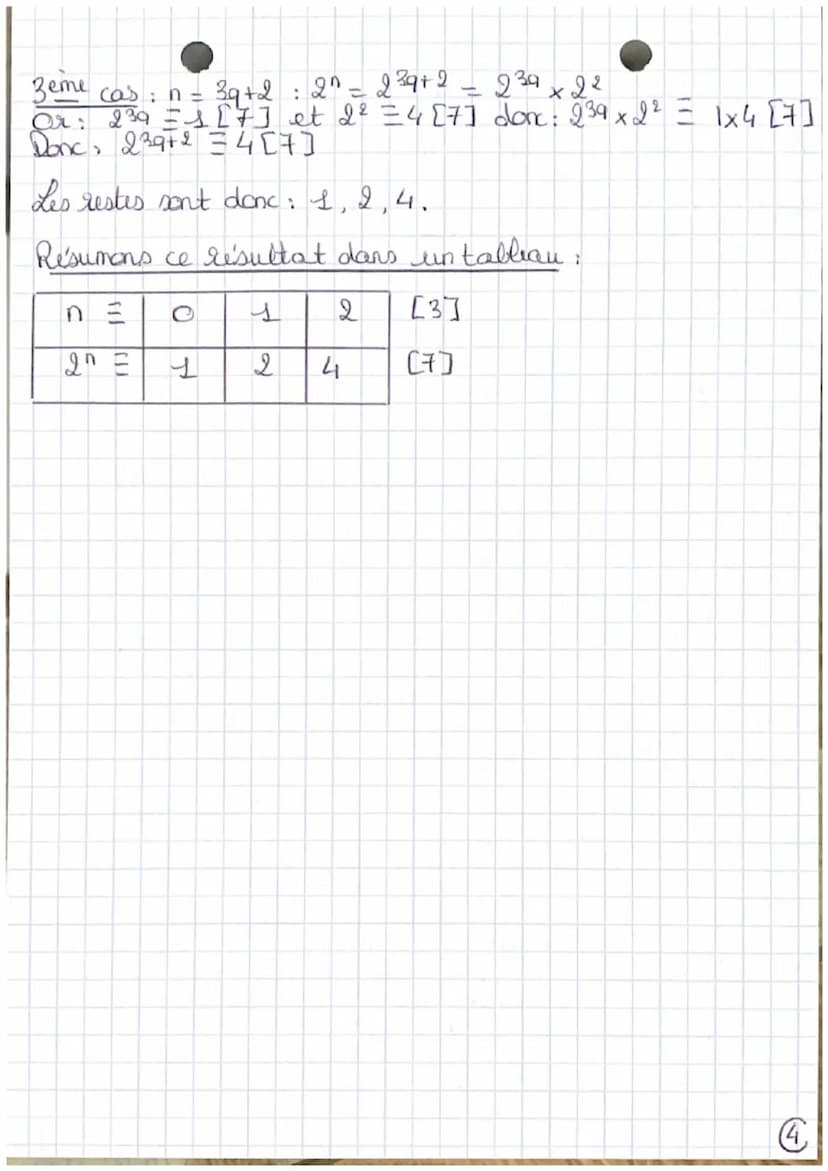 3ème cas : n = 3q+2 : 2ⁿ = 2^{3q+2} = 2^{3q} × 2²
Or : 2^{3q} ≡ 1 [7] et 2² ≡ 4 [7] donc : 2^{3q} × 2² ≡ 1×4 [7]
Donc, 2^{3q+2} ≡ 4 [7]
Les restes sont donc : 1, 2, 4.
Résumons ce résultat dans un tableau :
n ≡ 0 1 2 [3]
2ⁿ ≡ 1 2 4 [7]
4